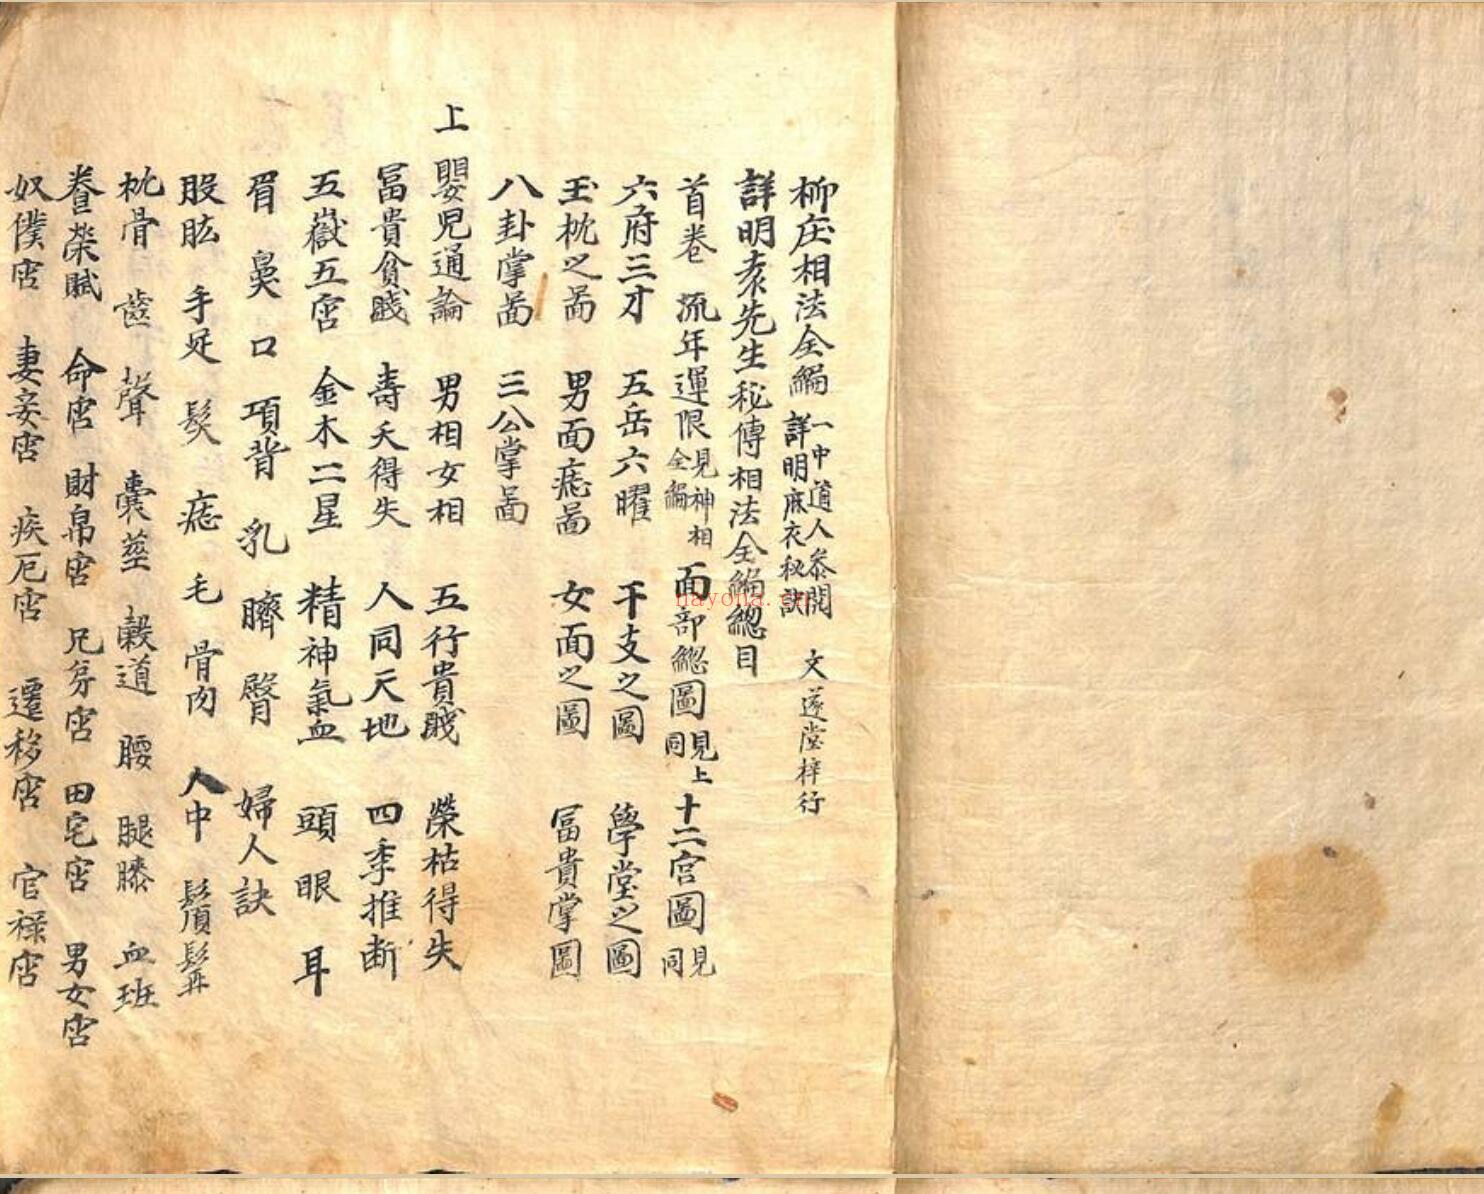 柳庄相法全編 一中道人叅閱 詳明麻衣秘訣 文遂堂梓行
詳明袁先生秘傳相法全編總目
首卷 流年運限 見神相全編 面部總圖 見上同 十二宮圖 見同
六府三才 五岳六曜 干支之圖 學堂之圖
玉枕之啚 男面痣啚 女面之圖 冨貴掌圖
八卦掌啚 三公掌啚
上 嬰児通論 男相女相 五行貴賤 榮枯得失
冨貴貧賤 壽夭得失 人同天地 四季推断
五嶽五宮 金木二星 精神氣血 頭 眼 耳
眉 鼻 口 項背 乳 臍 臀 婦人訣
股肱 手足 髮 痣 毛 骨肉 人中 鬚髯
枕骨 齒 聲 囊莖 穀道 腰 腿膝 血班
養榮賦 命宮 財帛宮 兄弟宮 田宅宮 男女宮
奴僕宮 妻妾宮 疾厄宮 遷移宮 官祿宮
nayona.cn